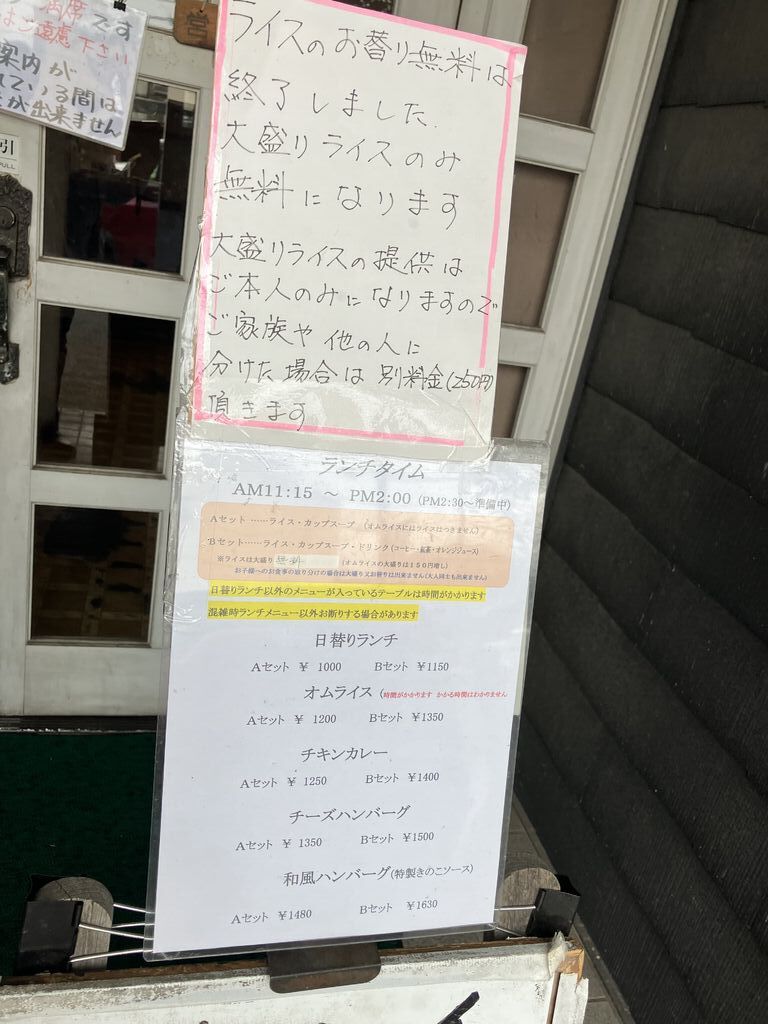 満席です
ご遠慮下さい
案内が
ている間は
が出来ません
営
引
PULL
ライスのお替り無料は
終了しました.
大盛りライスのみ
無料になります
大盛りライスの提供は
ご本人のみになりますので
ご家族や他の人に
分けた場合は別料金(250円)
頂きます
ランチタイム
AM11:15 ～ PM2:00 (PM2:30～準備中)
Aセット……ライス・カップスープ (オムライスにはライスはつきません)
Bセット……ライス・カップスープ・ドリンク(コーヒー・紅茶・オレンジジュース)
※ライスは大盛り 無料 (オムライスの大盛りは150円増し)
お子様へのお食事の取り分けの場合は大盛り又お替りは出来ません(大人同士も出来ません)
日替りランチ以外のメニューが入っているテーブルは時間がかかります
混雑時ランチメニュー以外お断りする場合があります
日替りランチ
Aセット ¥ 1000 Bセット ¥1150
オムライス (時間がかかります かかる時間はわかりません
Aセット ¥ 1200 Bセット ¥1350
チキンカレー
Aセット ¥ 1250 Bセット ¥1400
チーズハンバーグ
Aセット ¥ 1350 Bセット ¥1500
和風ハンバーグ(特製きのこソース)
Aセット ¥1480 Bセット ¥1630